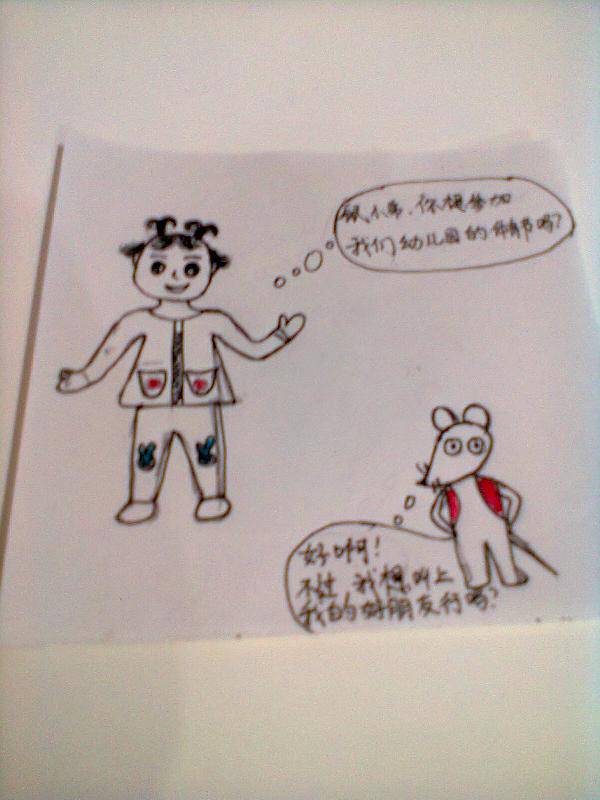 鼠小弟,你想参加
我们幼儿园的体育节吗?
好啊!
不过,我想叫上
我的好朋友行吗?